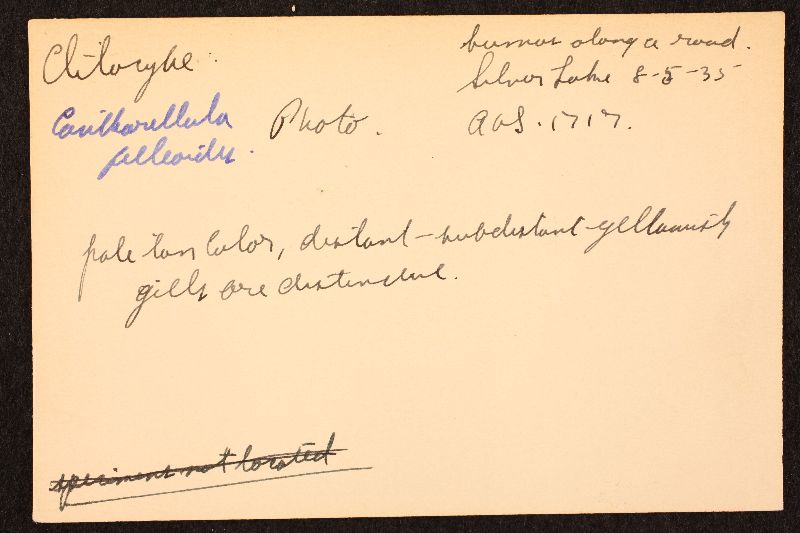 Clitocybe.
humus along a road.
Silver Lake 8-5-35
AHS. 1717.
Cantharellula
Photo.
pale tan color, distant-subdistant yellowish
gills are distinctive.
specimens not located